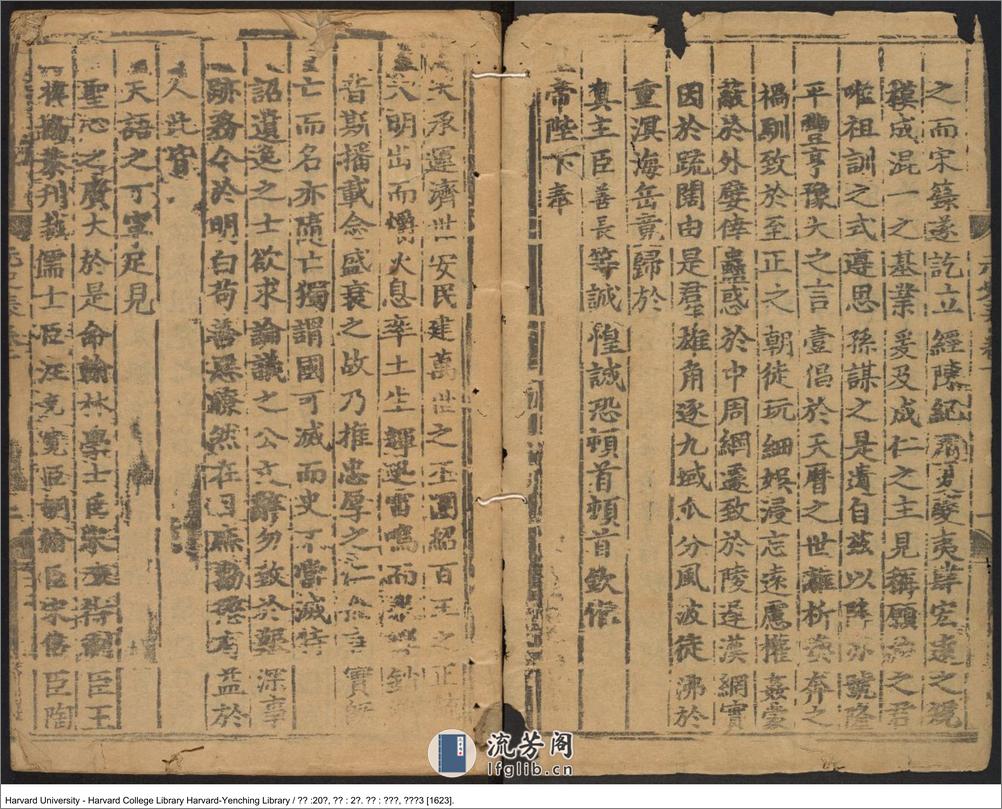 之而宋籙遂訖立經陳紀用夏變夷肆宏遠之規
模成混一之基業爰及成仁之主見稱願治之君
唯祖訓之式遵思孫謀之是遺自茲以降亦號隆
平豐亨豫大之言壹倡於天曆之世離析奔之
禍馴致於至正之朝徒玩細娛浸忘遠慮權姦蒙
蔽於外嬖倖蠱惑於中周綱遽致於陵遲漢網實
因於疏闊由是群雄角逐九域瓜分風波徒沸於
重溟海岳竟歸於
真主臣善長等誠惶誠恐頓首頓首欽惟
帝陛下奉
天承運濟世安民建萬世之丕圖紹百王之正
大明出而爝火息率土生輝迅雷鳴而
昔斯播載念盛衰之故乃推忠厚之仁實
亡而名亦隨亡獨謂國可滅而史不當滅特
詔遺逸之士欲求論議之公文辭勿致於艱深事
跡務令於明白苟善惡瞭然在目庶勸懲有益於
人此皆
天語之丁寧足見
聖心之廣大於是命翰林學士臣宋濂待制臣王
儒士臣汪克寬臣胡翰臣宋僖臣陶
流芳阁
lfglib.cn
Harvard University - Harvard College Library Harvard-Yenching Library / ?? :20?, ?? : 2?. ?? : ???, ???3 [1623].